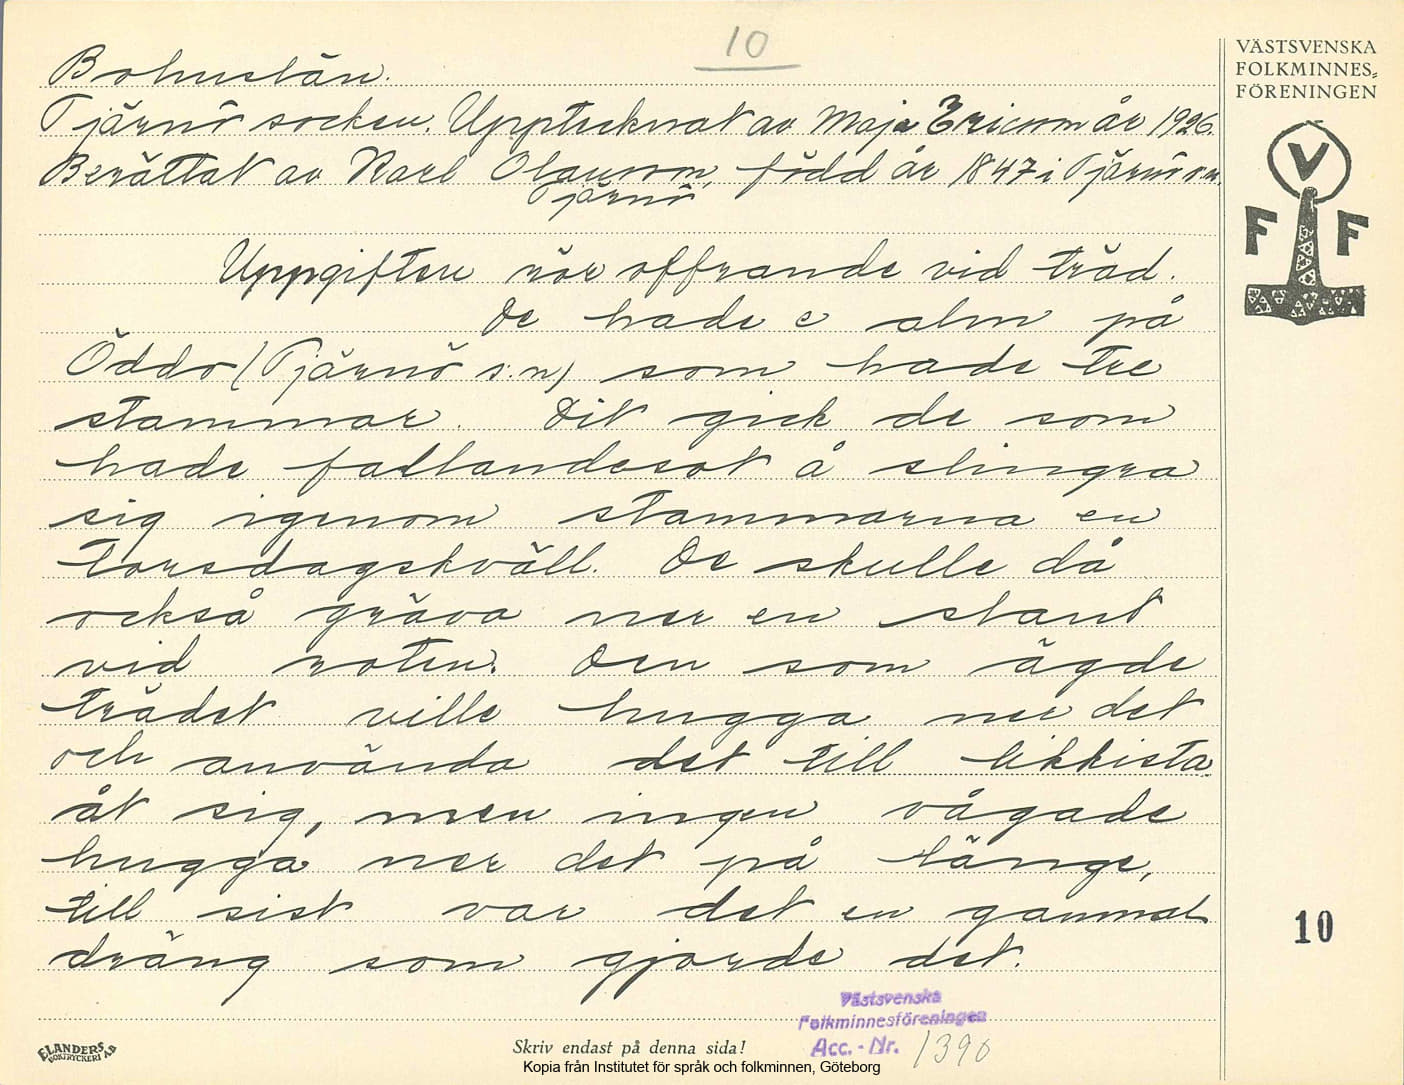 10
Bohuslän.
Tjärnö socken. Upptecknat av Maja Ericson år 1926.
Berättat av Karl Olausson, född år 1847 i Tjärnö s.n.
Tjärnö
Uppgiften rör offrande vid träd.
De hade e alm på
Öddö (Tjärnö s.n) som hade tre
stammar. Dit gick de som
hade fallandesot å slingra
sig igenom stammarna en
torsdagskväll. De skulle då
också gräva ner en slant
vid roten. Den som ägde
trädet ville hugga ner det
och använda det till likkista
åt sig, men ingen vågade
hugga ner det på länge,
till sist var det en gammal
dräng som gjorde det.
VÄSTSVENSKA
FOLKMINNES-
FÖRENINGEN
V
F F
10
Västsvenska
Folkminnesföreningen
Acc. - Nr. 1390
ELANDERS
BOKTRYCKERI AB
Skriv endast på denna sida!
Kopia från Institutet för språk och folkminnen, Göteborg